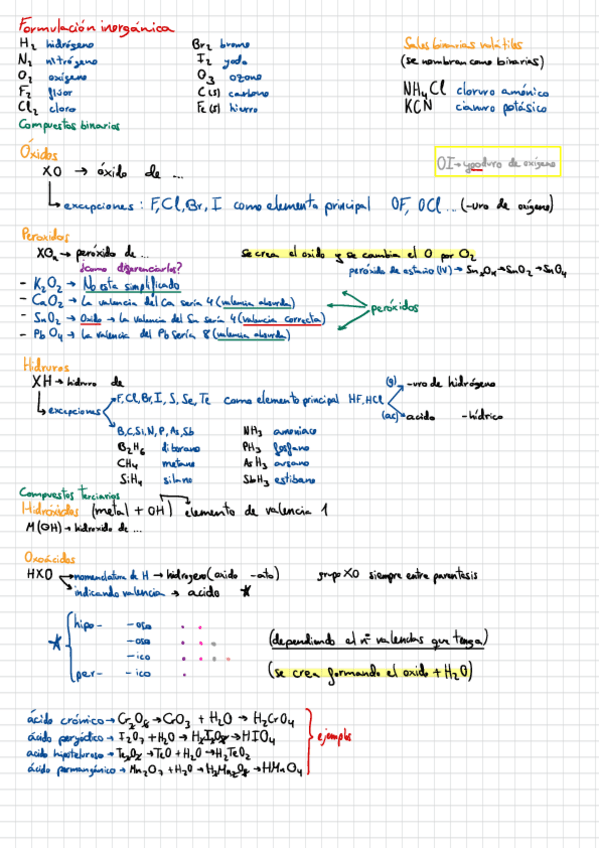 Formulación inorgánica
H2 hidrógeno
N2 nitrógeno
O2 oxígeno
F2 fluor
Cl2 cloro
Br2 bromo
I2 yodo
O3 ozono
C(s) carbono
Fe(s) hierro
Sales binarias volátiles
(se nombran como binarias)
NH4Cl cloruro amónico
KCN cianuro potásico
Compuestos binarios
Óxidos
XO → óxido de ...
excepciones: F, Cl, Br, I como elemento principal OF, OCl ... (-uro de oxígeno)
OI → yoduro de oxígeno
Peróxidos
XOn → peróxido de ...
se crea el oxido y se cambia el O por O2
¿como diferenciarlos?
peróxido de estaño (IV) → Sn2O4 → SnO2 → SnO4
- K2O2 → No esta simplificado
- CaO2 → La valencia del Ca sería 4 (valencia absurda)
- SnO2 → Oxido → La valencia del Sn sería 4 (valencia correcta)
- PbO4 → La valencia del Pb sería 8 (valencia absurda)
peróxidos
Hidruros
XH → hidruro de
excepciones
F, Cl, Br, I, S, Se, Te como elemento principal HF, HCl
(g) -uro de hidrógeno
(ac) → acido -hídrico
B, C, Si, N, P, As, Sb
B2H6 diborano
CH4 metano
SiH4 silano
NH3 amoniaco
PH3 fosfano
AsH3 arsano
SbH3 estibano
Compuestos terciarios
Hidróxidos (metal + OH) elemento de valencia 1
M(OH) → hidroxido de ...
Oxoácidos
HXO nomenclatura de H → hidrogeno (oxido -ato) grupo XO siempre entre parentesis
indicando valencia → acido *
* hipo- -oso
-oso
-ico
per- -ico
(dependiendo el nº valencias que tenga)
(se crea formando el oxido + H2O)
ácido crómico → Cr2O6 → CrO3 + H2O → H2CrO4
ácido peryódico → I2O7 + H2O → H2I2O8 → HIO4
acido hipoteluroso → Te2O2 → TeO + H2O → H2TeO2
ácido permangánico → Mn2O7 + H2O → H2Mn2O8 → HMnO4
ejemplos